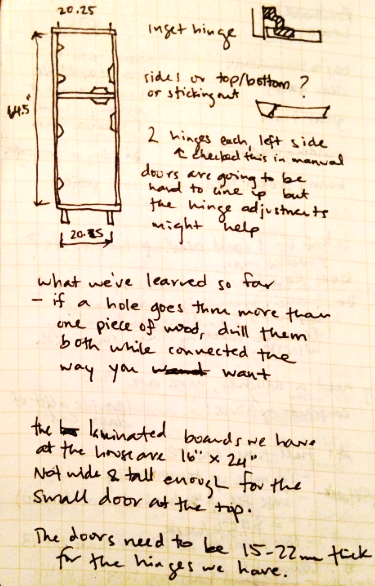 20.25
inset hinge
64.5"
sides or top/bottom ?
or sticking out
2 hinges each, left side
↑ checked this in manual
doors are going to be
hard to line up but
the hinge adjustments
might help
20.25
what we've learned so far
- if a hole goes thru more than
one piece of wood, drill them
both while connected the
way you want
the laminated boards we have
at the house are 16" x 24"
Not wide & tall enough for the
small door at the top.
The doors need to be 15-22mm thick
for the hinges we have.